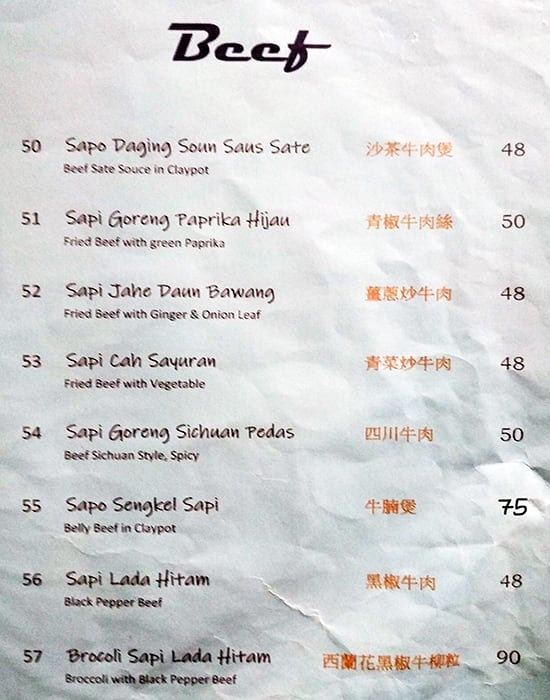 Beef
50 Sapo Daging Soun Saus Sate 沙茶牛肉煲 48
Beef Sate Souce in Claypot
51 Sapi Goreng Paprika Hijau 青椒牛肉絲 50
Fried Beef with green Paprika
52 Sapi Jahe Daun Bawang 薑蔥炒牛肉 48
Fried Beef with Ginger & Onion Leaf
53 Sapi Cah Sayuran 青菜炒牛肉 48
Fried Beef with Vegetable
54 Sapi Goreng Sichuan Pedas 四川牛肉 50
Beef Sichuan Style, Spicy
55 Sapo Sengkel Sapi 牛腩煲 75
Belly Beef in Claypot
56 Sapi Lada Hitam 黑椒牛肉 48
Black Pepper Beef
57 Brocoli Sapi Lada Hitam 西蘭花黑椒牛柳粒 90
Broccoli with Black Pepper Beef